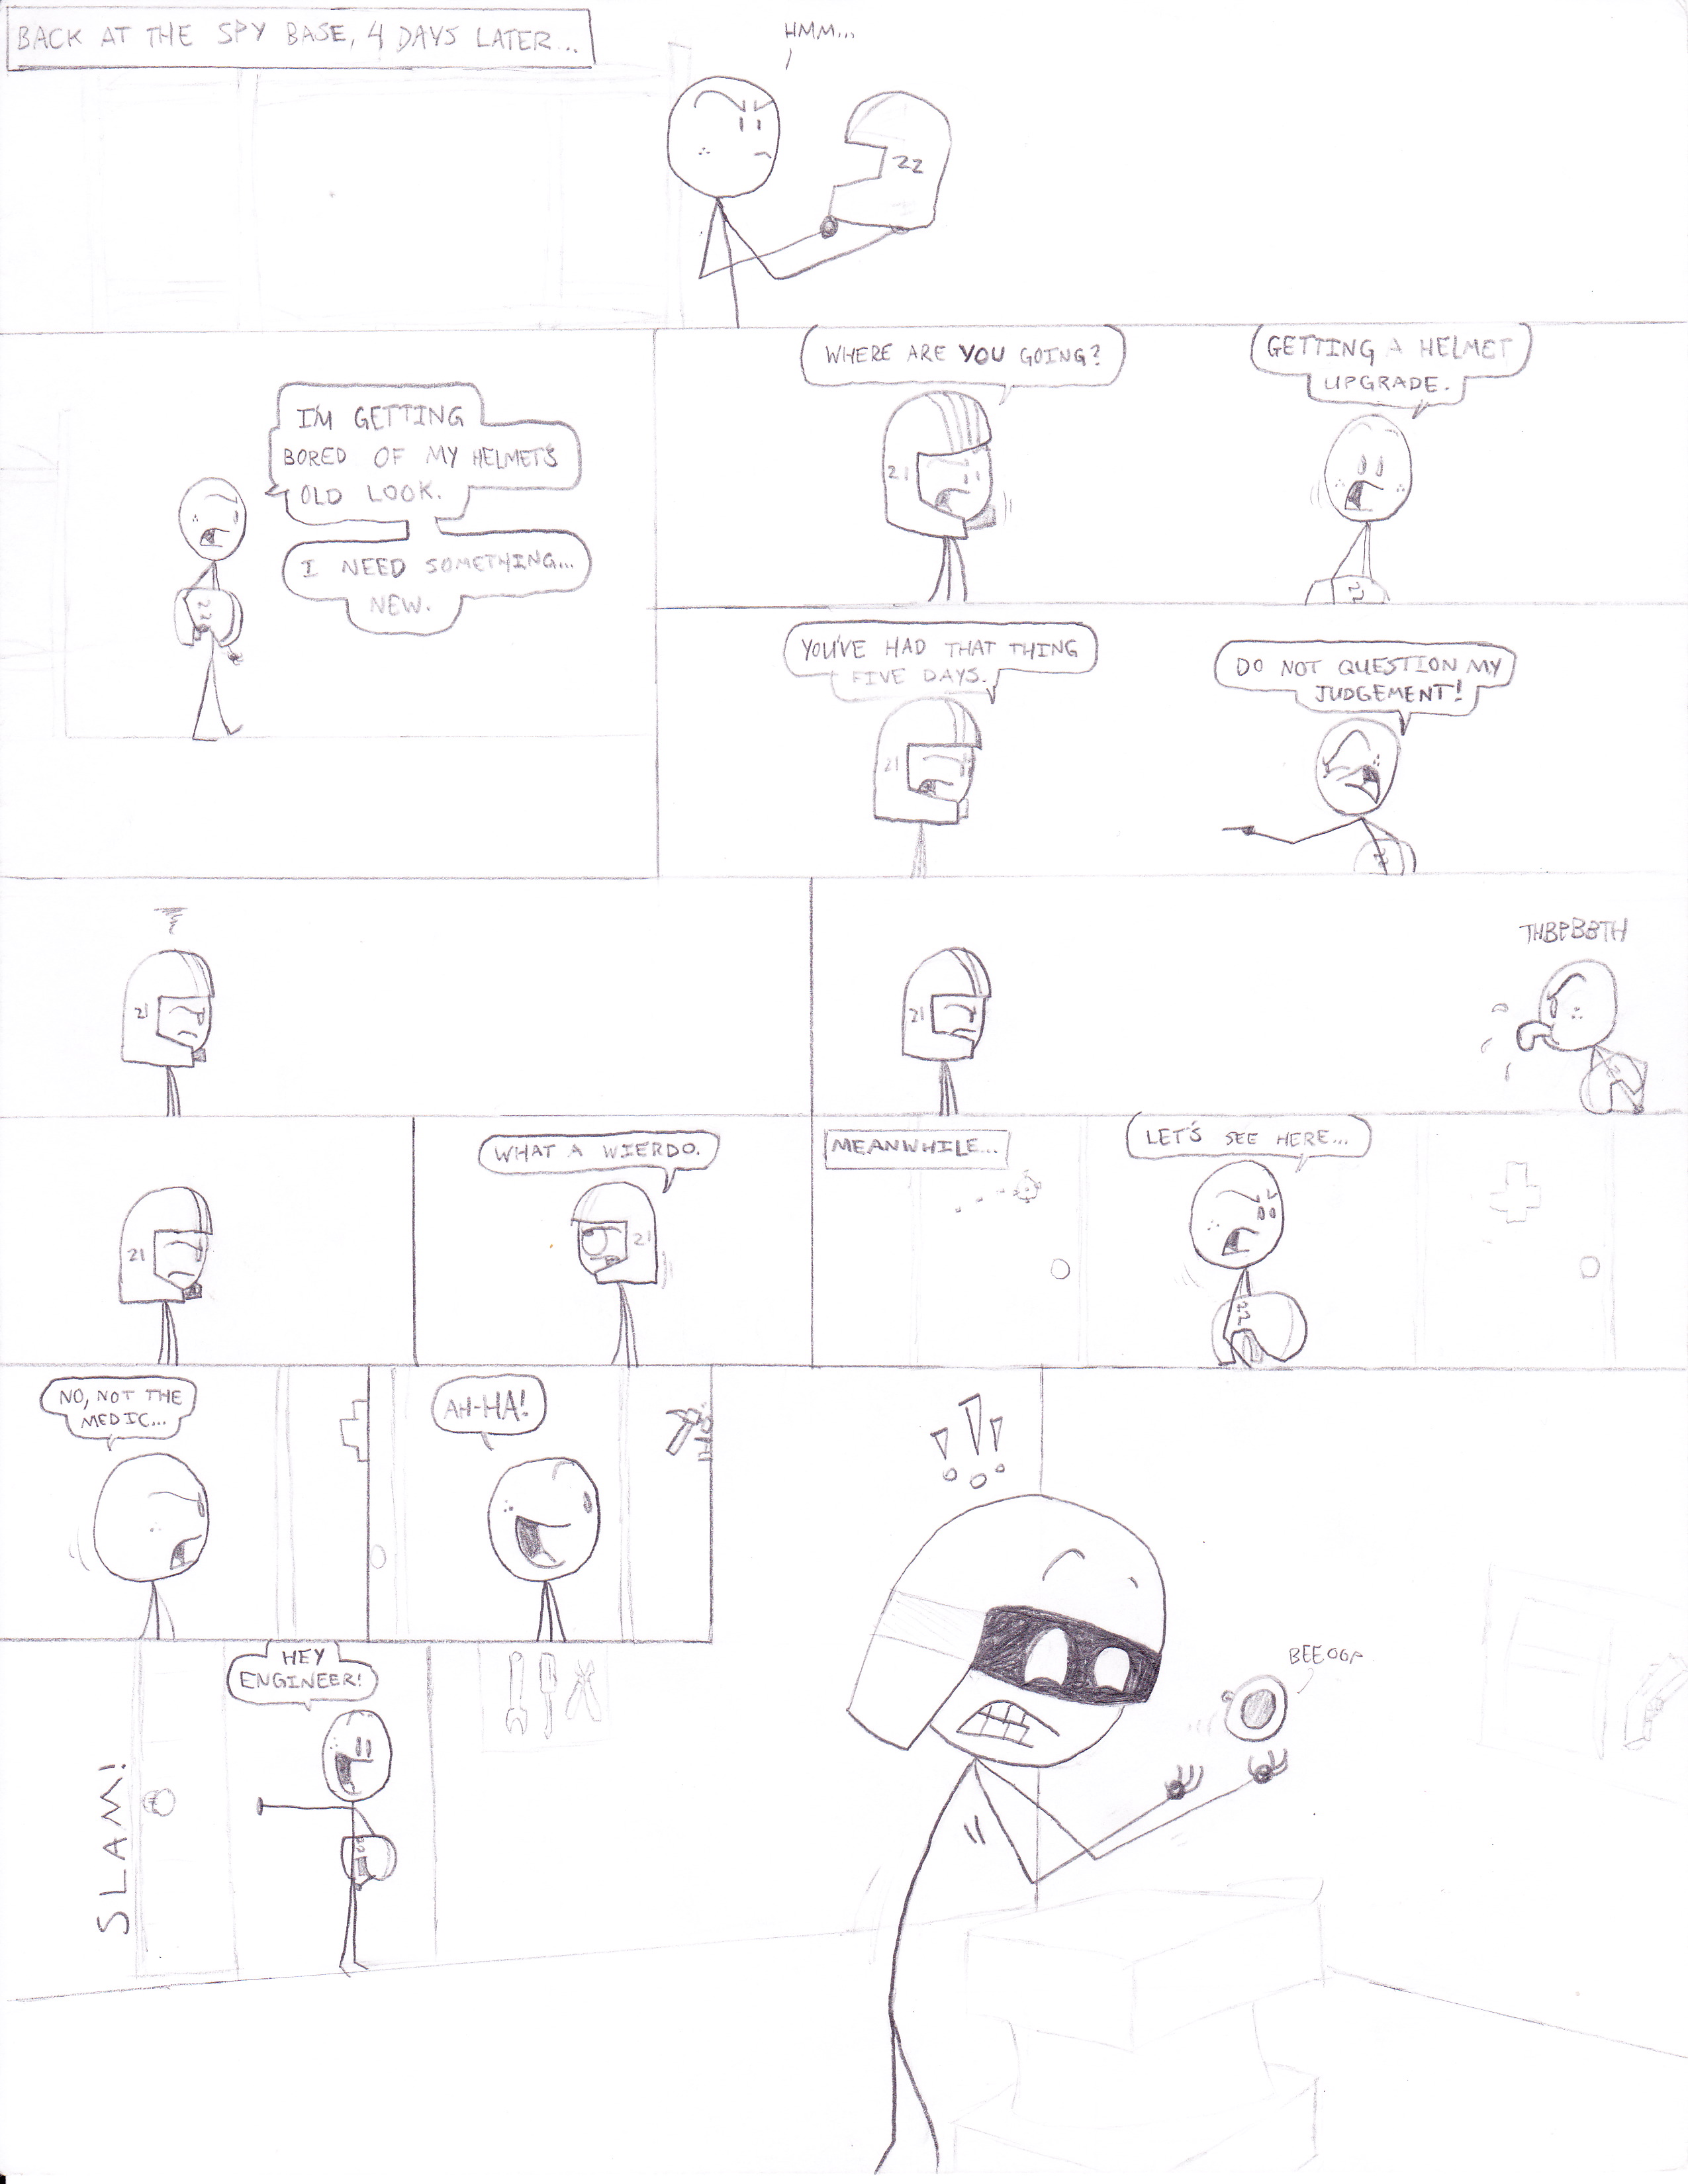 BACK AT THE SPY BASE, 4 DAYS LATER...
HMM...
22
I'M GETTING
BORED OF MY HELMET'S
OLD LOOK.
I NEED SOMETHING...
NEW.
22
WHERE ARE YOU GOING?
21
GETTING A HELMET
UPGRADE.
22
YOU'VE HAD THAT THING
FIVE DAYS.
21
DO NOT QUESTION MY
JUDGEMENT!
21
21
THBPBBTH
21
WHAT A WIERDO.
21
MEANWHILE...
LET'S SEE HERE...
22
NO, NOT THE
MEDIC...
AH-HA!
!!!
SLAM!
HEY
ENGINEER!
BEEOOP